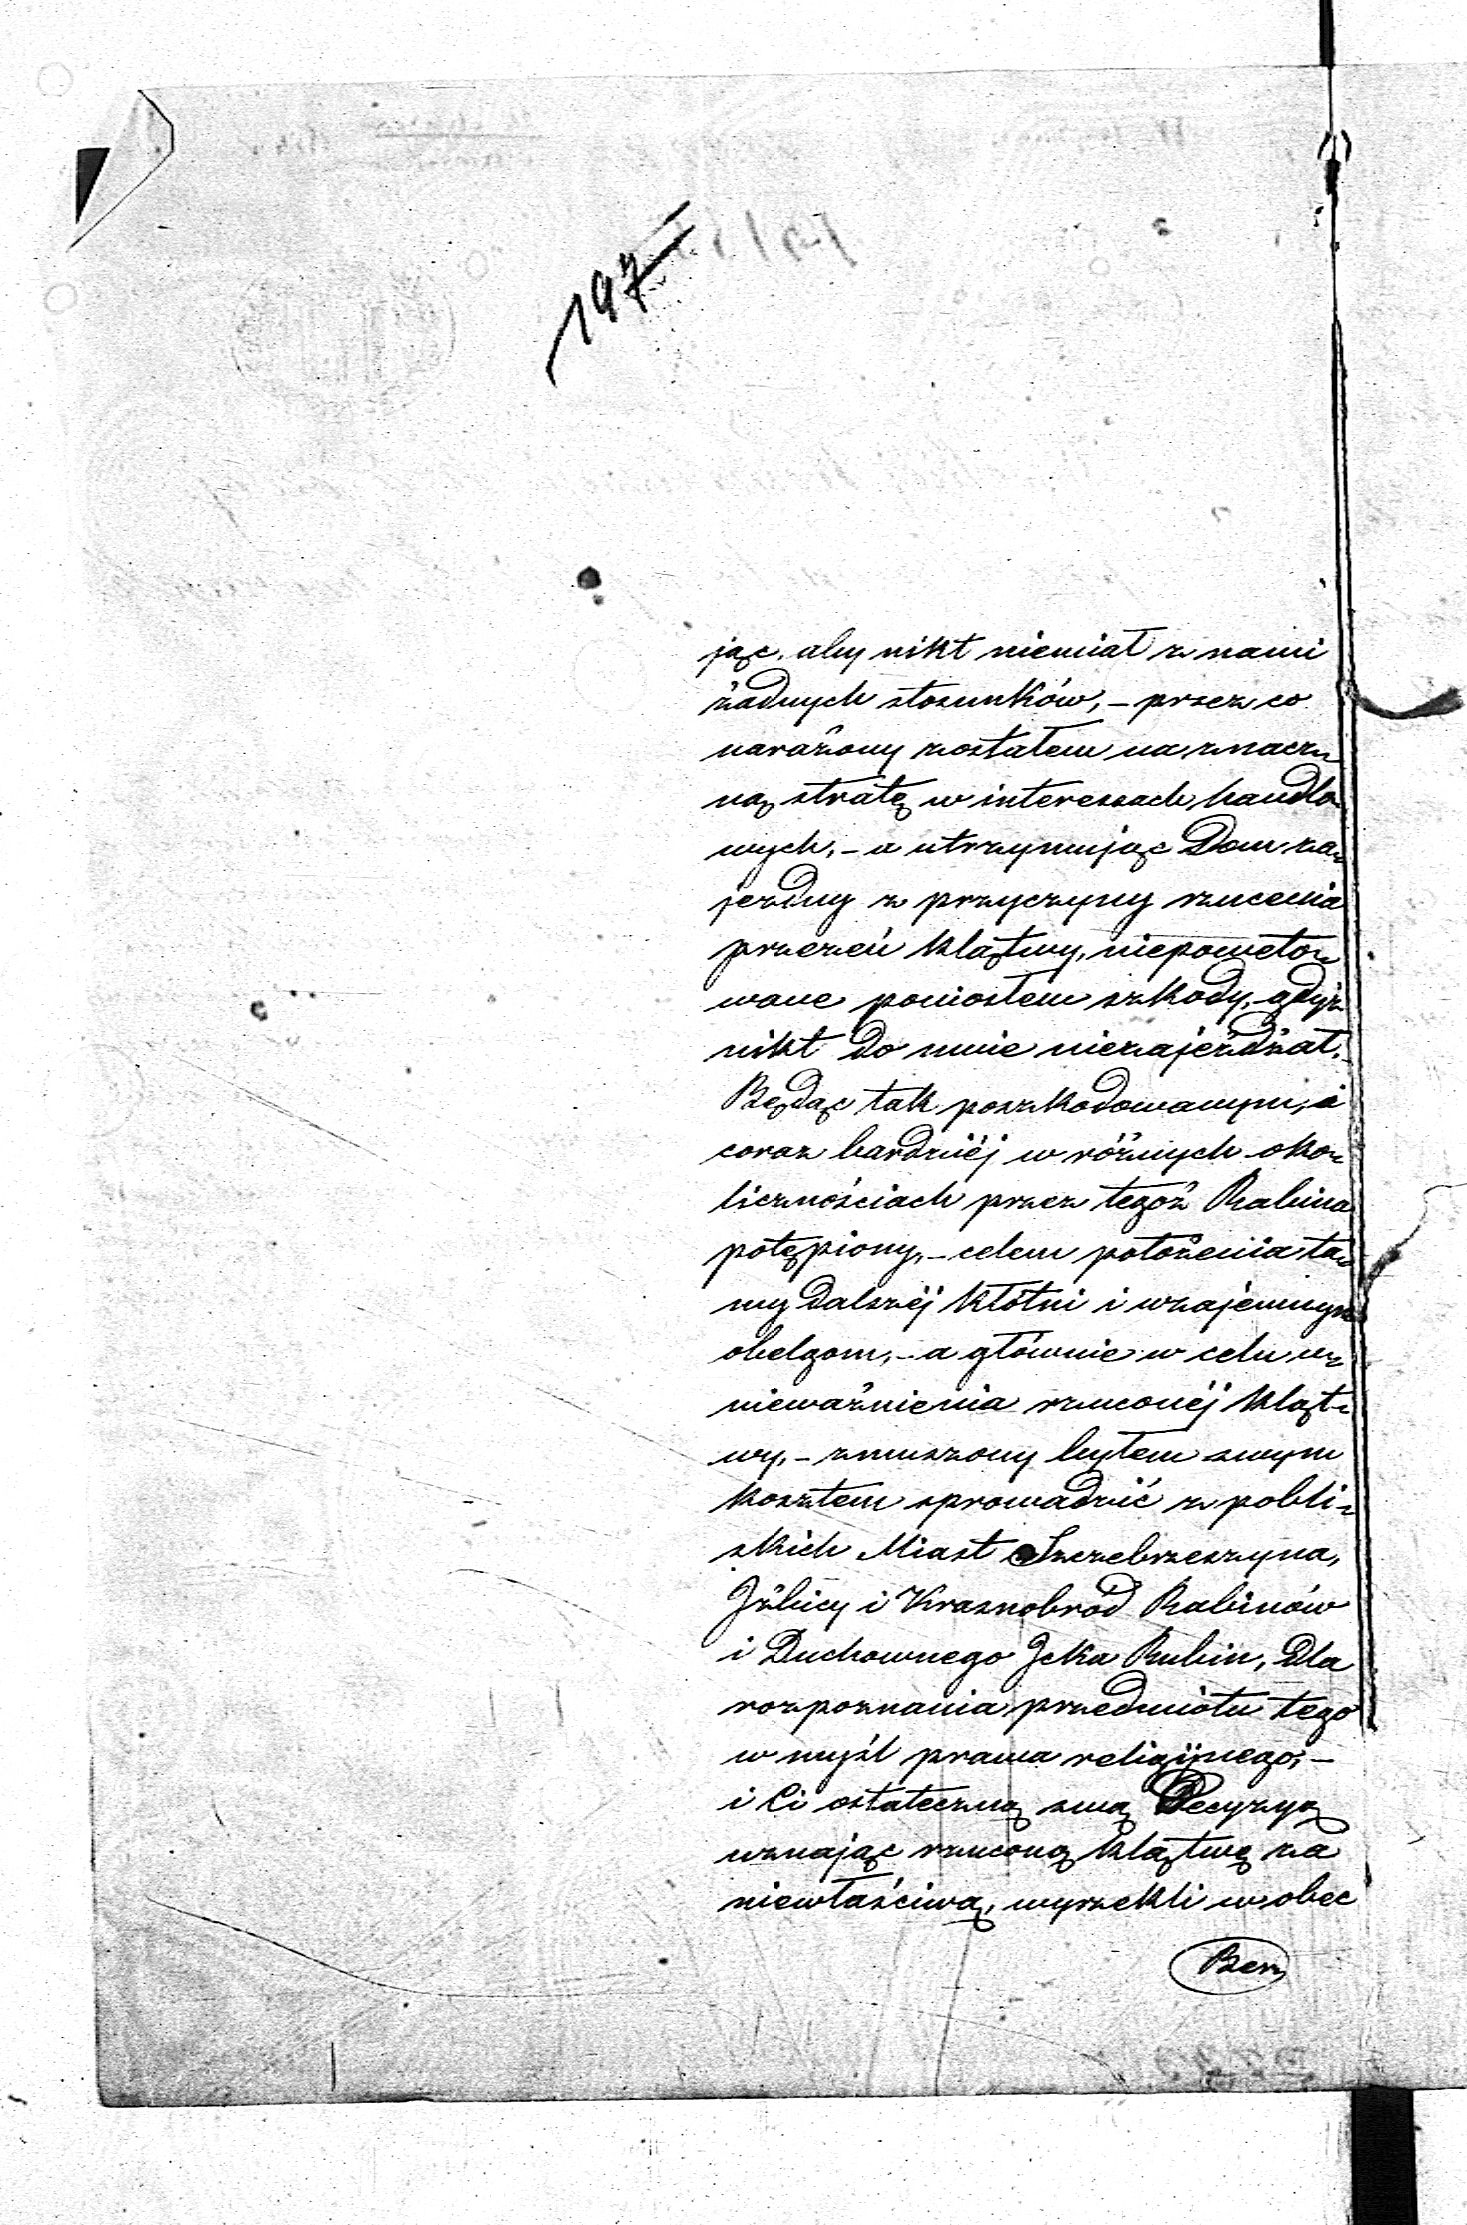 197
jąc, aby nikt niemiał z nami
żadnych stosunków, – przez co
narażony zostałem na znacz-
ną stratę w interessach handlo-
wych, – a utrzymując Dom za-
jezdny z przyczyny rzucenia
przezeń klątwy, niepoweto-
wane poniosłem szkody, gdyż
nikt do mnie niezajeżdżał. –
Będąc tak poszkodowanym, i
coraz bardziéj w różnych oko-
licznościach przez tegoż Rabina
potępiony, – celem położenia ta-
my dalszéj kłótni i wzajemnym
obelgom, – a głównie w celu u-
nieważnienia rzuconéj kląt-
wy, – zmuszony byłem swym
kosztem sprowadzić z pobli-
skich Miast Szczebrzeszyna,
Iżbicy i Krasnobród Rabinów
i Duchownego Icka Rubin, dla
rozpoznania przedmiotu tego
w myśl prawa religijnego; –
i Ci ostateczną swą Decyzyą
uznając rzuconą klątwę za
niewłaściwą, wyrzekli wobec